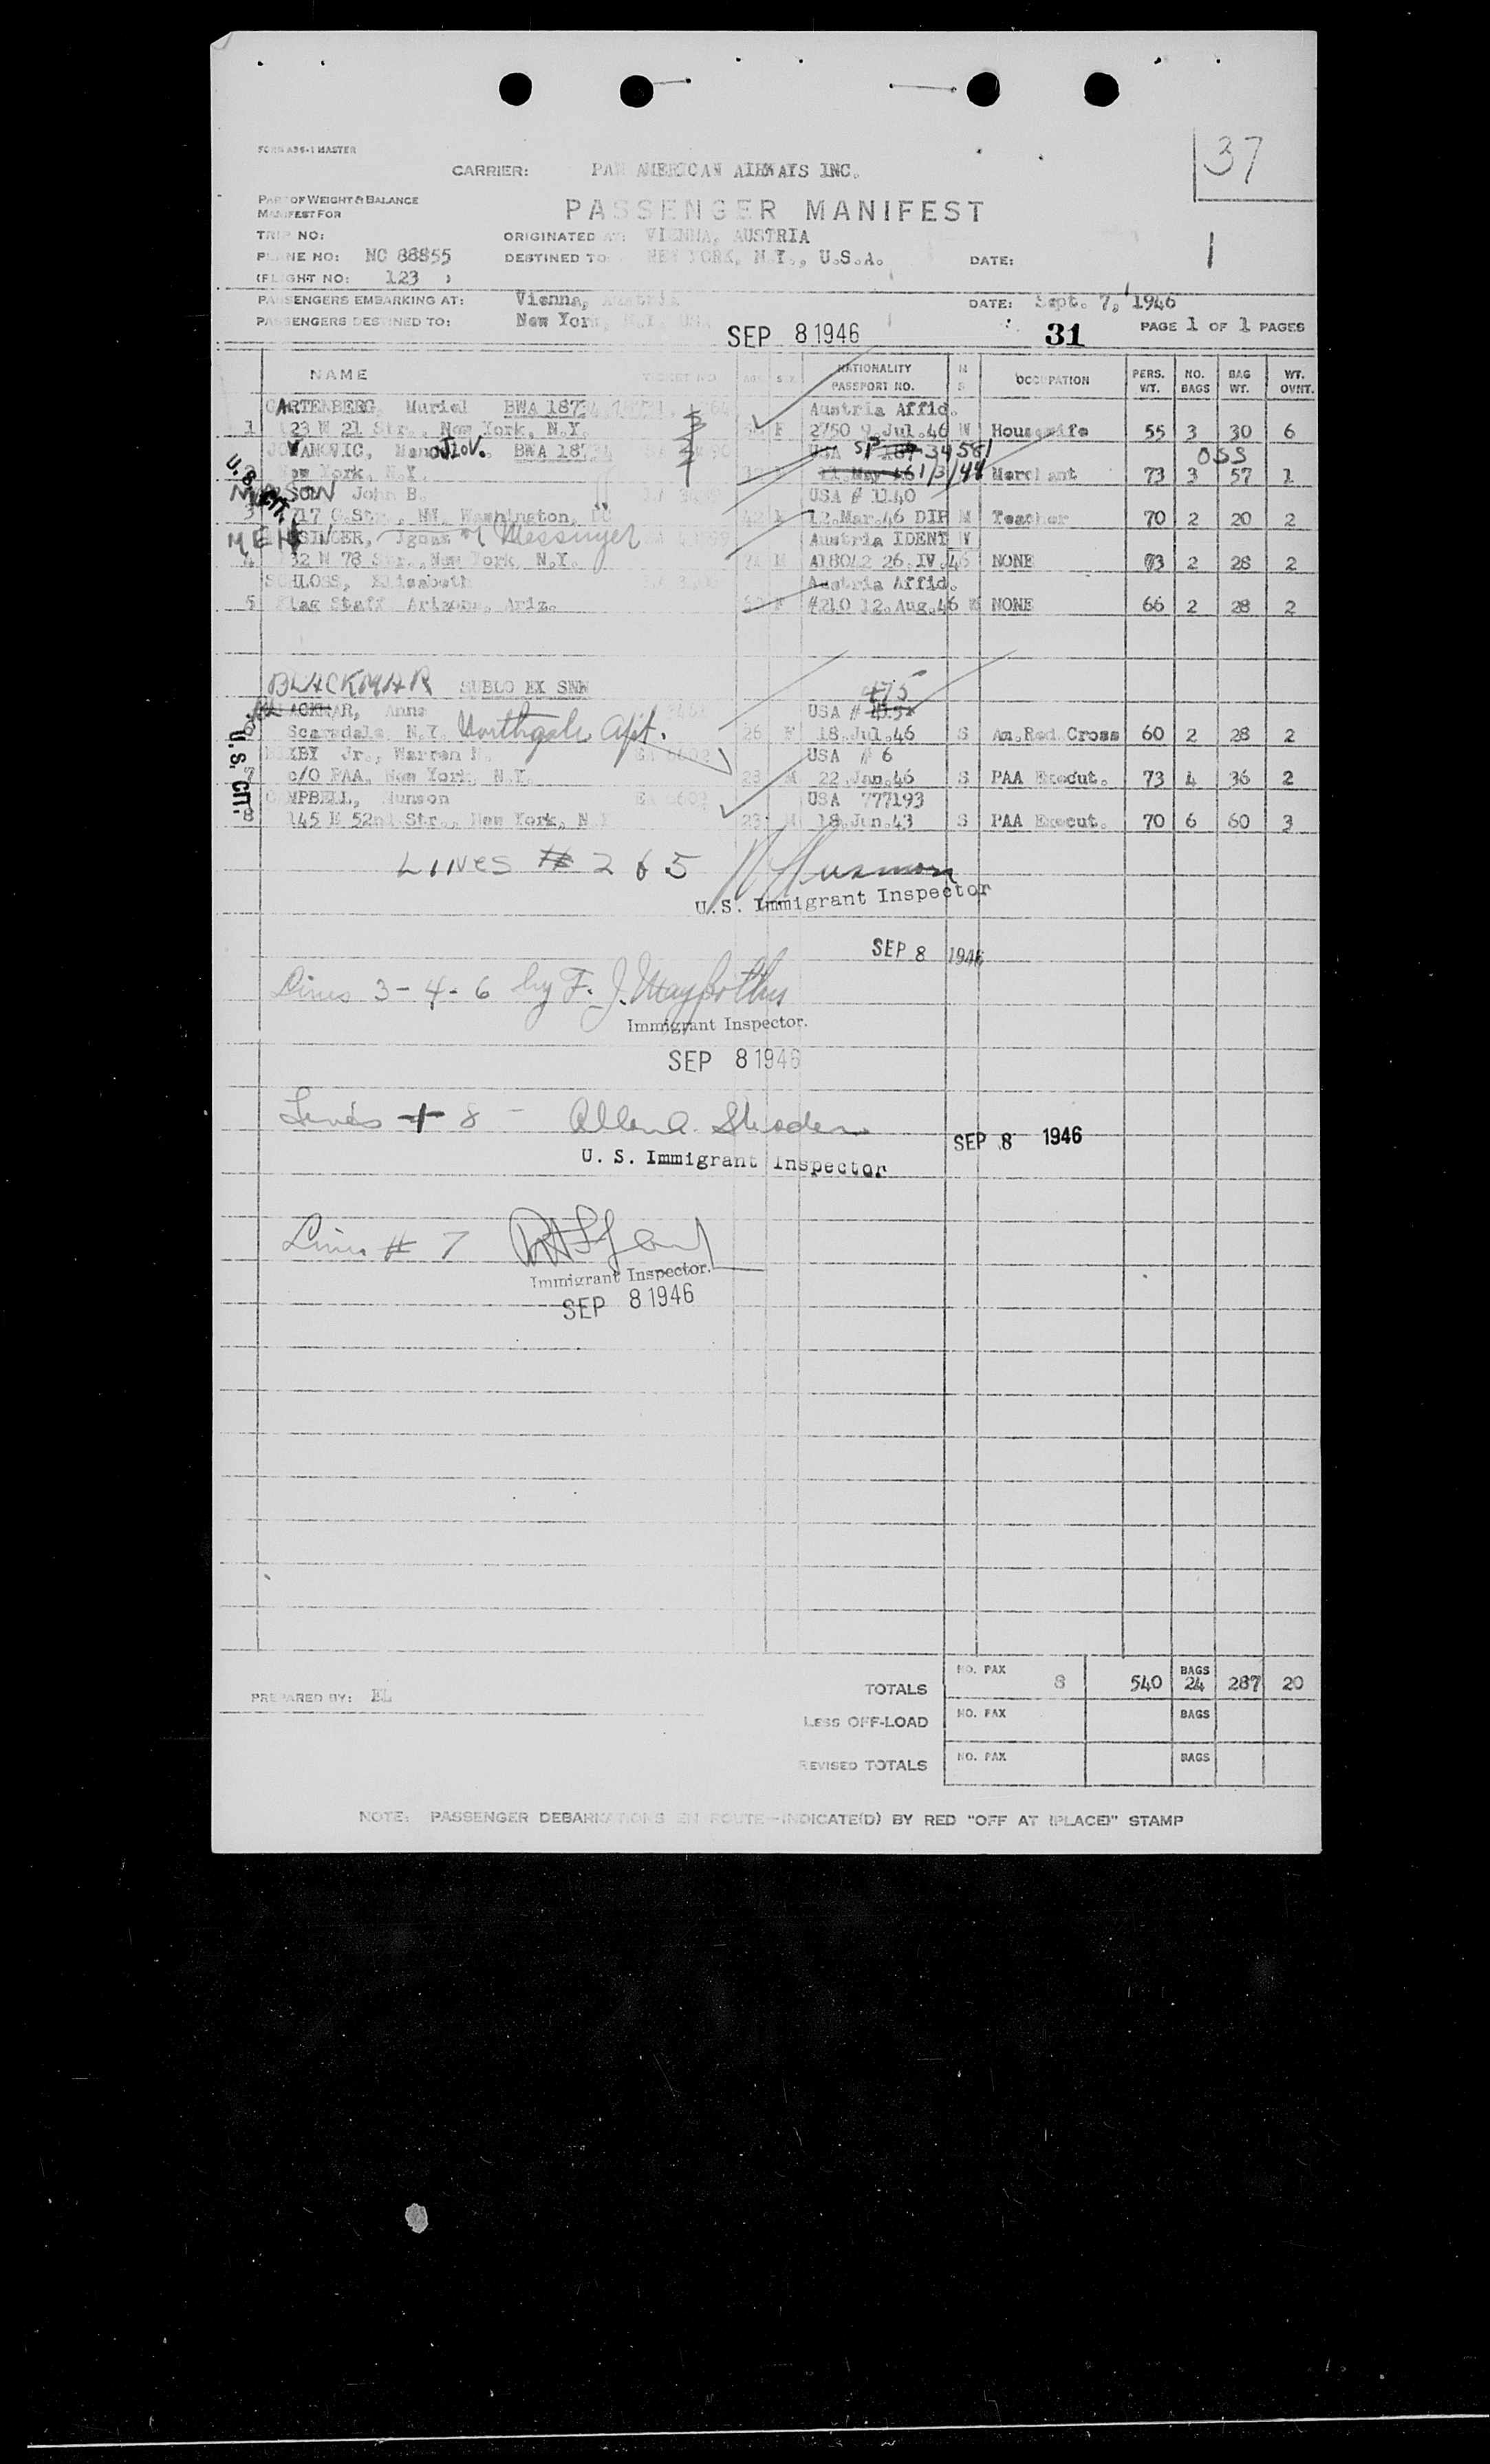 FORM A35-1 MASTER
37
CARRIER: PAN AMERICAN AIRWAYS INC.
PART OF WEIGHT & BALANCE
MANIFEST FOR
PASSENGER MANIFEST
TRIP NO: ORIGINATED AT: VIENNA, AUSTRIA
PLANE NO: NC 88855 DESTINED TO: NEW YORK, N.Y., U.S.A. DATE: 1
(FLIGHT NO: 123 )
PASSENGERS EMBARKING AT: Vienna, Austria DATE: Sept. 7, 1946
PASSENGERS DESTINED TO: New York, N.Y. USA
SEP 8 1946 31 PAGE 1 OF 1 PAGES
NAME TICKET NO AGE SEX NATIONALITY PASSPORT NO. M S OCCUPATION PERS. WT. NO. BAGS BAG WT. WT. OVNT.
GARTENBERG, Muriel BWA 1873 Austria Affid.
1 23 W 21 Str., New York, N.Y. F 2750 9.Jul.46 W Housewife 55 3 30 6
JOVANOVIC, Manojlov. BWA 187 USA SP 34581 OSS
2 New York, N.Y. 11.May 46 1/3/44 Merchant 73 3 57 1
U.S. CIT.
MASON John B. USA # 1140
3 717 G.Str., NW. Washington, DC 42 M 12.Mar.46 DIP M Teacher 70 2 20 2
MESSINGER, Ignas Messinger Austria IDENT W
4 32 W 78 Str., New York, N.Y. 71 M A18042 26.IV.46 NONE 73 2 28 2
SCHLOSS, Elisabeth Austria Affid.
5 Flag Staff, Arizona, Ariz. F #210 12.Aug.46 W NONE 66 2 28 2
BLACKMAR SUBLO EX SNN 475
BLACKMAR, Anne USA #
6 Scarsdale, N.Y. Northgate Apt. 26 F 18.Jul.46 S Am.Red Cross 60 2 28 2
BIXBY Jr., Warren H. USA # 6
7 c/O PAA, New York, N.Y. 23 M 22.Jan.46 S PAA Execut. 73 4 36 2
U.S. CIT.
CAMPBELL, Munson USA 777193
8 145 E 52nd Str., New York, N.Y. 23 M 18.Jun.43 S PAA Execut. 70 6 60 3
LINES # 2 & 5
U.S. Immigrant Inspector
SEP 8 1946
Lines 3-4-6 by F. J.
Immigrant Inspector.
SEP 8 1946
Lines 1 8 - Allen A.
U. S. Immigrant Inspector
SEP 8 1946
Line # 7
Immigrant Inspector.
SEP 8 1946
PREPARED BY: EL
TOTALS NO. PAX 8 540 BAGS 24 287 20
LESS OFF-LOAD NO. PAX BAGS
REVISED TOTALS NO. PAX BAGS
NOTE: PASSENGER DEBARKATIONS EN ROUTE—INDICATE(D) BY RED "OFF AT (PLACE)" STAMP